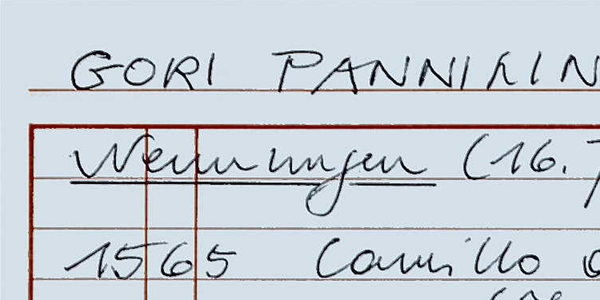 GORI PANNILIN
Nennungen (16.
1565 Camillo